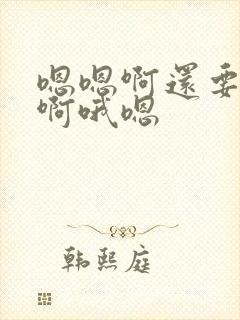 嗯嗯啊還要
啊哦嗯
韩熙庭